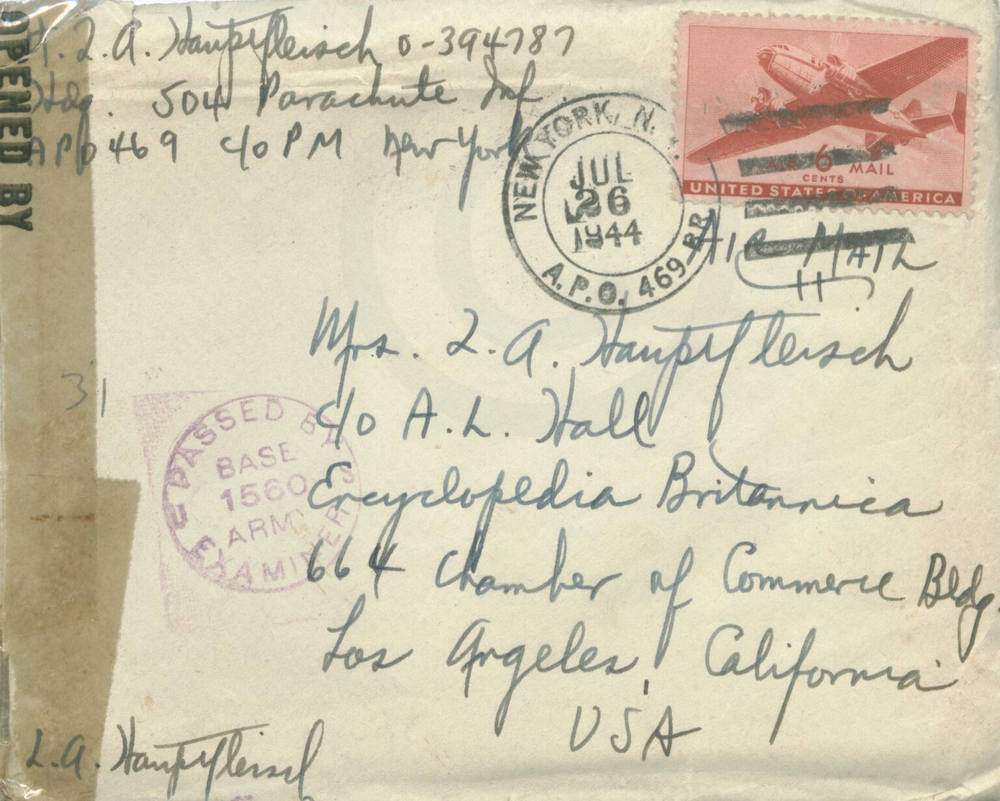 OPENED BY
L. A. Hauptfleisch O-394787
Hdq. 504 Parachute Inf
APO 469 c/o PM New York
NEW YORK, N.
JUL
26
1944
A.P.O. 469-BR
AIR 6 MAIL
CENTS
UNITED STATES OF AMERICA
AIR MAIL
Mrs. L. A. Hauptfleisch
c/o A. L. Hall
Encyclopedia Britannica
664 Chamber of Commerce Bldg
Los Angeles, California
USA
31
PASSED BY
BASE
1560
ARMY
EXAMINER
L. A. Hauptfleisch